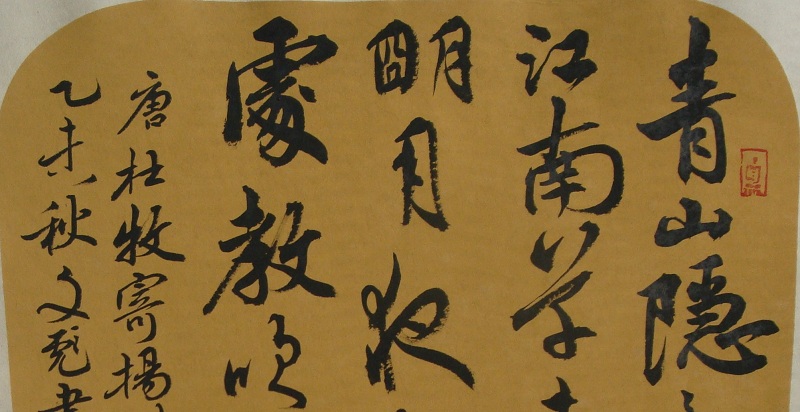 青山隐
江南草
明月夜
處教
唐杜牧寄揚
乙未秋文彪書